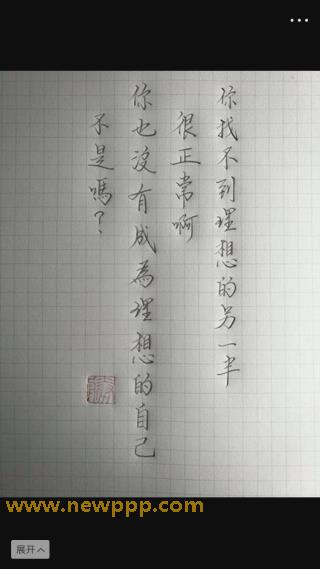 你找不到理想的另一半
很正常啊
你也沒有成為理想的自己
不是嗎？
www.newppp.com
展开